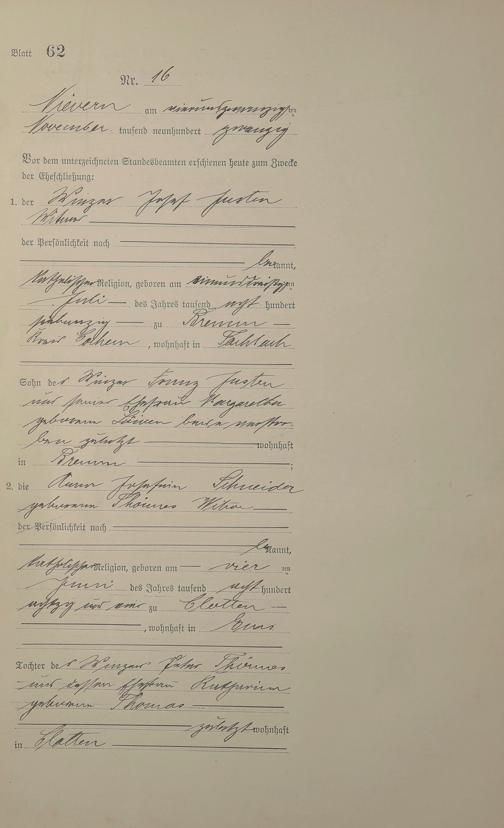 Blatt 62
Nr. 16
Nievern am vierundzwanzigsten
November tausend neunhundert zwanzig
Vor dem unterzeichneten Standesbeamten erschienen heute zum Zwecke
der Eheschließung:
1. der Winzer Josef Justen
Witwer
der Persönlichkeit nach
bekannt,
katholischer Religion, geboren am einunddreißigsten
Juli des Jahres tausend acht hundert
siebenzig zu Bremm
Kreis Cochem, wohnhaft in
Sohn des Winzer Franz Justen
und seiner Ehefrau Margaretha
geborene beide verstor-
ben zuletzt wohnhaft
in Bremm ;
2. die Anna Josefein Schneider
geborene Thönnes Witwe
der Persönlichkeit nach
bekannt,
katholischer Religion, geboren am vier ten
Juni des Jahres tausend acht hundert
achtzig und zu Clotten
, wohnhaft in Ems
Tochter des Winzers Peter Thönnes
und dessen Ehefrau Katharina
geborene Thomas
zuletzt wohnhaft
in Clotten